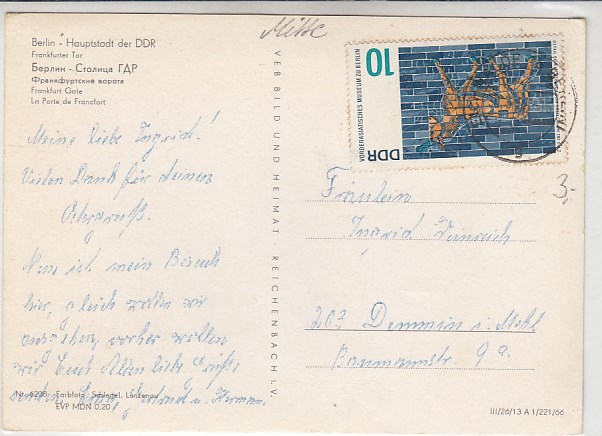 Berlin - Hauptstadt der DDR
Frankfurter Tor
Берлин - Столица ГДР
Франкфуртские ворота
Frankfurt Gate
La Porte de Francfort
Mitte
Meine liebe Ingrid!
Vielen Dank für deinen
Nun ist mein Besuch
hier, gleich wollen wir
ausgehen, vorher wollen
wir Euch Allen liebe Grüße
senden, Gertrud u. Hermann
Nr. 6208 Farbfoto: Schlegel,
EVP MDN 0,20
VEB BILD UND HEIMAT · REICHENBACH I. V.
10
VORDERASIATISCHES MUSEUM ZU BERLIN
DDR
3,-
Fräulein
Ingrid
202 Demmin i. Meckl
Baumannstr. 9a.
III/26/13 A 1/221/66